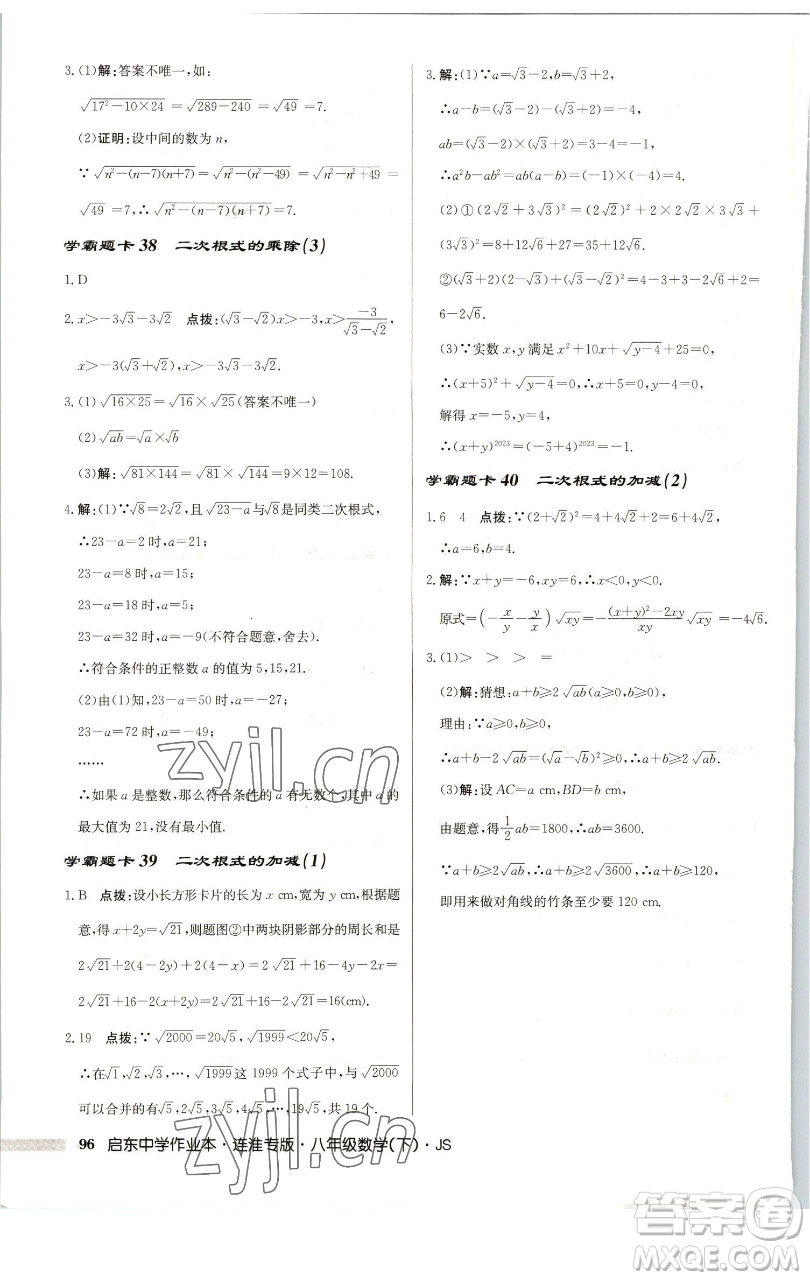 3.(1)解:答案不唯一,如:
√(17²-10×24) = √(289-240) = √49 =7.
(2)证明:设中间的数为n,
∵√(n²-(n-7)(n+7)) = √(n²-(n²-49)) = √(n²-n²+49) =
√49 =7,∴√(n²-(n-7)(n+7)) =7.
学霸题卡38 二次根式的乘除(3)
1.D
2.x>-3√3-3√2 点拨:(√3-√2)x>-3,x>-3/(√3-√2),
x>-3(√3+√2),x>-3√3-3√2.
3.(1)√(16×25)=√16×√25(答案不唯一)
(2)√(ab)=√a×√b
(3)解:√(81×144)=√81×√144=9×12=108.
4.解:(1)∵√8=2√2,且√(23-a)与√8是同类二次根式,
∴23-a=2时,a=21;
23-a=8时,a=15;
23-a=18时,a=5;
23-a=32时,a=-9(不符合题意,舍去).
∴符合条件的正整数a的值为5,15,21.
(2)由(1)知,23-a=50时,a=-27;
23-a=72时,a=-49;
……
∴如果a是整数,那么符合条件的a有无数个,其中a的
最大值为21,没有最小值.
学霸题卡39 二次根式的加减(1)
1.B 点拨:设小长方形卡片的长为x cm,宽为y cm,根据题
意,得x+2y=√21,则题图②中两块阴影部分的周长和是
2√21+2(4-2y)+2(4-x)=2√21+16-4y-2x=
2√21+16-2(x+2y)=2√21+16-2√21=16(cm).
2.19 点拨:∵√2000=20√5,√1999<20√5,
∴在√1,√2,√3,…,√1999这1999个式子中,与√2000
可以合并的有√5,2√5,3√5,…,19√5,共19个.
96 启东中学作业本·连淮专版·八年级数学(下)·JS
3.解:(1)∵a=√3-2,b=√3+2,
∴a-b=(√3-2)-(√3+2)=-4,
ab=(√3-2)×(√3+2)=3-4=-1,
∴a²b-ab²=ab(a-b)=(-1)×(-4)=4.
(2)①(2√2+3√3)²=(2√2)²+2×2√2×3√3+
(3√3)²=8+12√6+27=35+12√6.
6-2√6.
(3)∵实数x,y满足x²+10x+√(y-4)+25=0,
∴(x+5)²+√(y-4)=0,
解得x=-5,y=4,
∴(x+y)²⁰²³=(-5+4)²⁰²³=-1.
学霸题卡40 二次根式的加减(2)
1.6 4 点拨:∵(2+√2)²=4+4√2+2=6+4√2,
∴a=6,b=4.
2.解:∵x+y=-6,xy=6,∴x<0,y<0.
原式=(-x/y-y/x)√(xy)=-((x+y)²-2xy)/(xy)√(xy)=-4√6.
3.(1)> > > =
(2)解:猜想:a+b≥2√(ab)(a≥0,b≥0),
理由:∵a≥0,b≥0,
∴a+b-2√(ab)=(√a-√b)²≥0,∴a+b≥2√(ab).
(3)解:设AC=a cm,BD=b cm,
由题意,得1/2ab=1800,∴ab=3600.
∵a+b≥2√(ab),∴a+b≥2√3600,∴a+b≥120,
即用来做对角线的竹条至少要120 cm.
zyjl.cn
zyjl.cn
答案圈
MXQE.COM